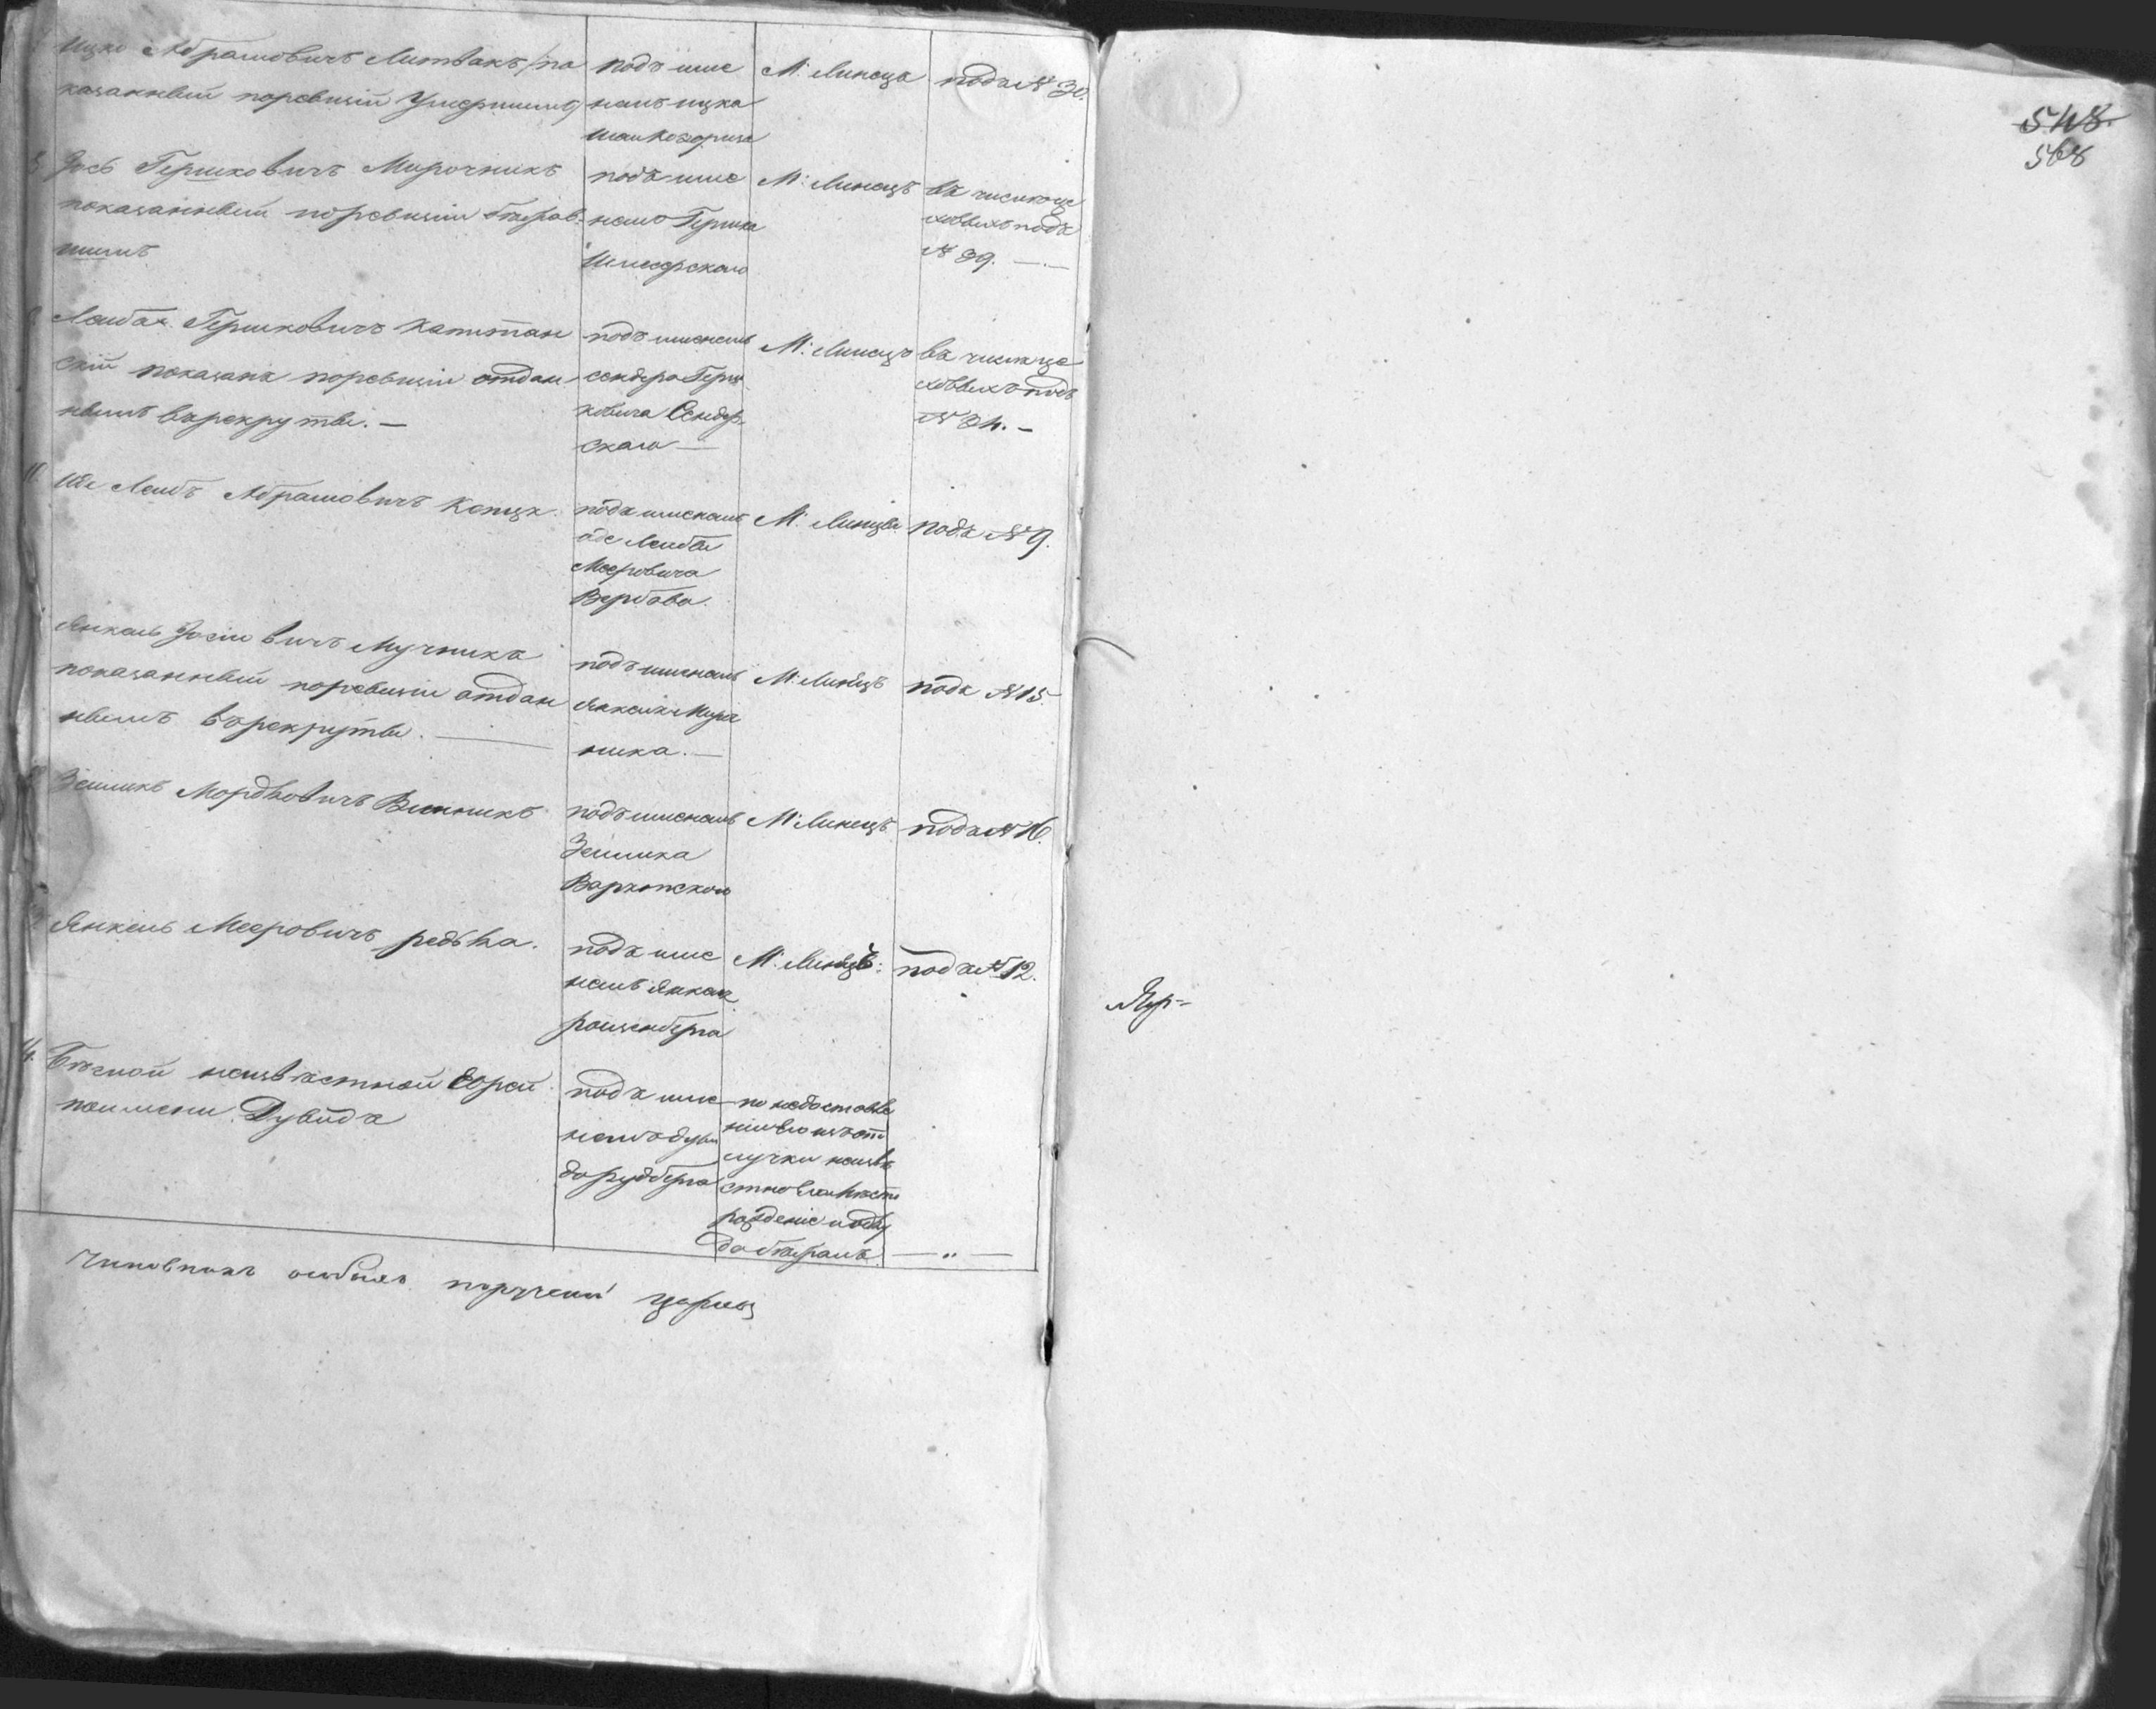 Ицко Абрамовичъ Литвакъ /по
казанный поревизіи Умершимъ/
подъ име
немъ ицка
М: Линецъ
подъ № 30.
Йось Гершковичъ Мирочникъ
показанный поревизіи бѣжав-
шимъ
подъ име
немъ Гершка
М: Линецъ
въ числѣ це
ховыхъ подъ
№ 39.
Лейба Гершковичъ Капитан
скій показанъ поревизіи отдан
нымъ въ рекруты. —
подъ именемъ
сендера Герш
ковича Сендер
скаго —
М: Линецъ
въ числѣ це
ховыхъ подъ
№ 34. —
Абрамовичъ Копць
подъ именемъ
Лейбы
Мееровича
Вербова.
М: Линцы
подъ № 9.
Янкель Іосіовичъ Мучникъ
показанный поревизіи отдан
нымъ въ рекруты. —
подъ именемъ
Янкеля Мирч
ника. —
М: Линецъ
подъ № 15.
Зейликъ Мордковичъ Винникъ
подъ именемъ
Зейлика
М: Линецъ
подъ № 16.
Янкель Мееровичъ редька.
подъ име
немъ Янкеля
розенберга
М: Линецъ:
подъ № 12.
14. Бѣглой неизвѣстной Еврей
поимени Дувидъ
подъ име
немъ дуви
да рудберга
по недоставле
нію его изъ от
лучки неизвѣ
стно его мѣсто
рожденіе и отку
да бѣжалъ
— " —
Чиновникъ особыхъ порученій
548.
568